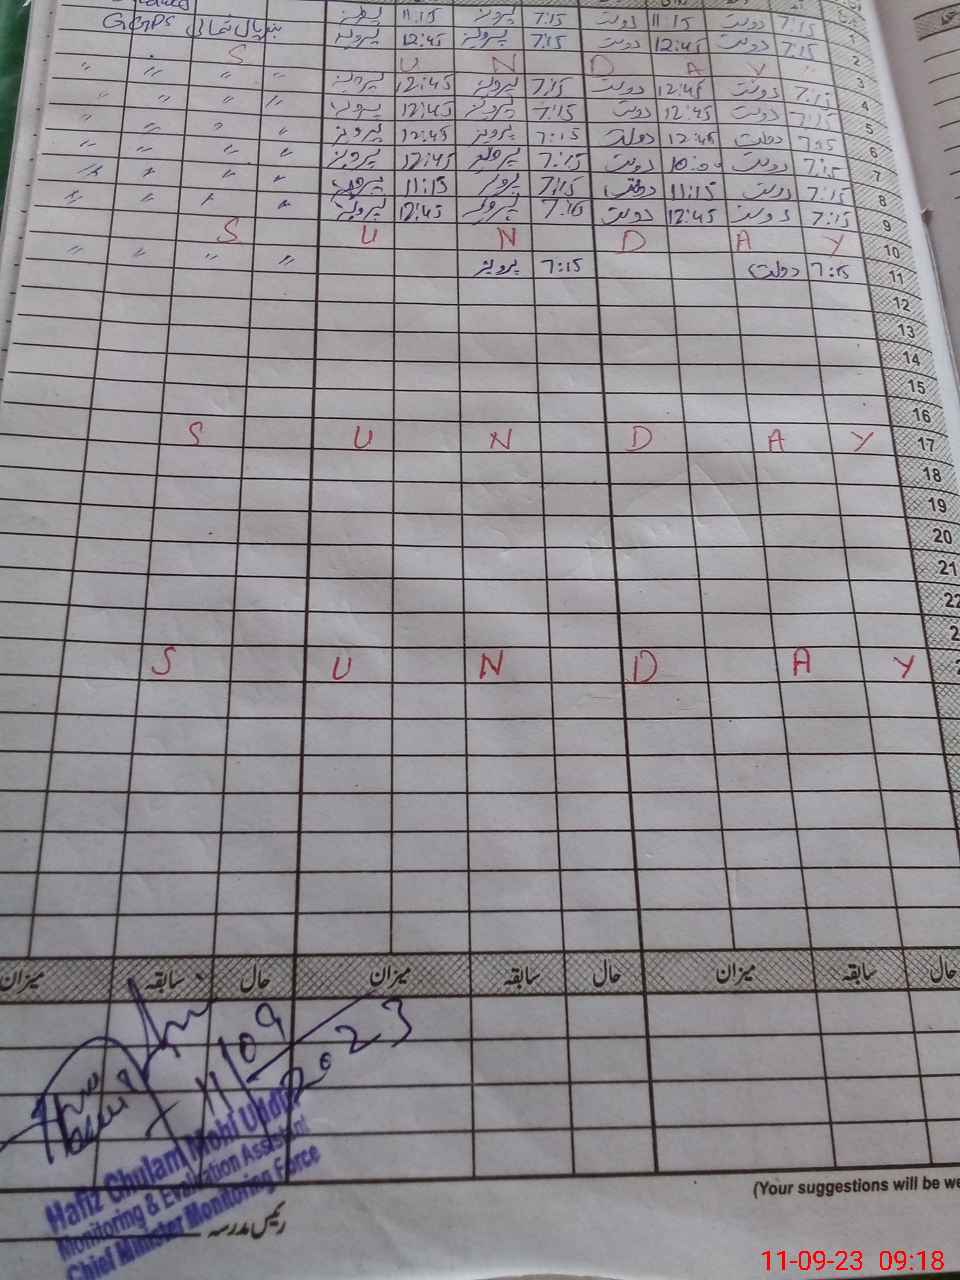 GGPS
پرویز 11:15 پرویز 7:15 دولت 11:15 دولت 7:15 1
پرویز 12:45 پرویز 7:15 دولت 12:45 دولت 7:15 2
S U N D A Y 3
〃 〃 〃 〃 پرویز 12:45 پرویز 7:15 دولت 12:45 دولت 7:15 4
〃 〃 〃 〃 پرویز 12:45 پرویز 7:15 دولت 12:45 دولت 7:15 5
〃 〃 〃 〃 پرویز 12:45 پرویز 7:15 دولت 12:45 دولت 7:15 6
〃 〃 〃 〃 پرویز 12:45 پرویز 7:15 دولت 10:00 دولت 7:15 7
〃 〃 〃 〃 پرویز 11:15 پرویز 7:15 دولت 11:15 دولت 7:15 8
〃 〃 〃 〃 پرویز 12:45 پرویز 7:15 دولت 12:45 دولت 7:15 9
S U N D A Y 10
〃 〃 〃 〃 پرویز 7:15 دولت 7:15 11
12
13
14
15
16
S U N D A Y 17
18
19
20
21
22
S U N D A Y
میزان سابقہ حال میزان سابقہ حال میزان سابقہ حال
11/09/2023
Hafiz Ghulam Mohi Uddin
Monitoring & Evaluation Assistant
Chief Minister Monitoring Force
رئیس مدرسہ
(Your suggestions will be we
11-09-23 09:18